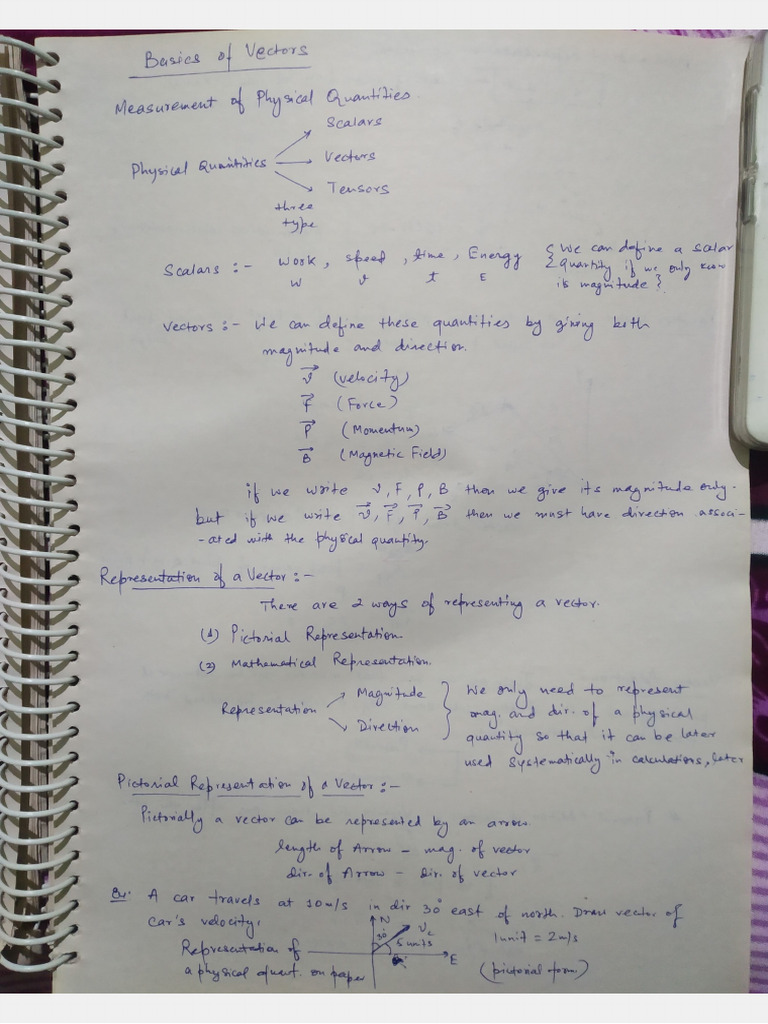 Basics of Vectors
Measurement of Physical Quantities.
Scalars
Physical Quantities
Vectors
Tensors
three
type
Scalars :- Work, speed, time, Energy {We can define a scalar
W v t E quantity if we only know
its magnitude}.
Vectors :- We can define these quantities by giving both
magnitude and direction.
v⃗ (velocity)
F⃗ (Force)
P⃗ (Momentum)
B⃗ (Magnetic Field)
if we write v, F, P, B then we give its magnitude only.
but if we write v⃗, F⃗, P⃗, B⃗ then we must have direction associ-
-ated with the physical quantity.
Representation of a Vector :-
There are 2 ways of representing a vector.
(1) Pictorial Representation.
(2) Mathematical Representation.
Representation
Magnitude
Direction
} We only need to represent
mag. and dir. of a physical
quantity so that it can be later
used systematically in calculations, later
Pictorial Representation of a Vector :-
Pictorially a vector can be represented by an arrow.
length of Arrow – mag. of vector
dir. of Arrow – dir. of vector
Ex. A car travels at 10 m/s in dir 30° east of north. Draw vector of
car's velocity.
N
30°
Vc
5 units
E
1 unit = 2 m/s
Representation of
a physical quant. on paper
(pictorial form)